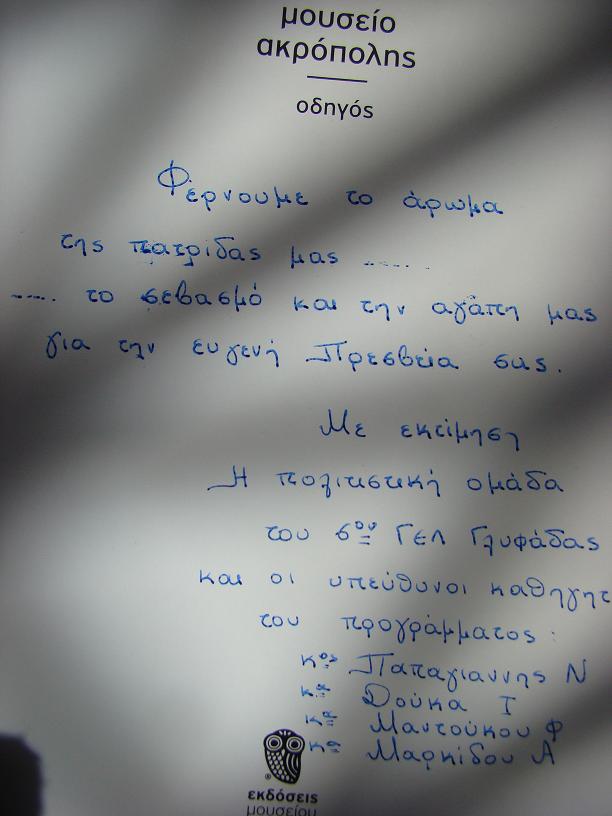 μουσείο
ακρόπολης
οδηγός
Φέρνουμε το άρωμα
της πατρίδας μας ..... .
..... το σεβασμό και την αγάπη μας
για την ευγενή Πρεσβεία σας.
Με εκτίμηση
Η πολιτιστική ομάδα
του 6ου ΓΕΛ Γλυφάδας
και οι υπεύθυνοι καθηγητ
του προγράμματος:
κος Παπαγιαννης Ν
κα Δούκα Ι
κα Μαντούκου Φ
κα Μαρκίδου Α
εκδόσεις
μουσείου